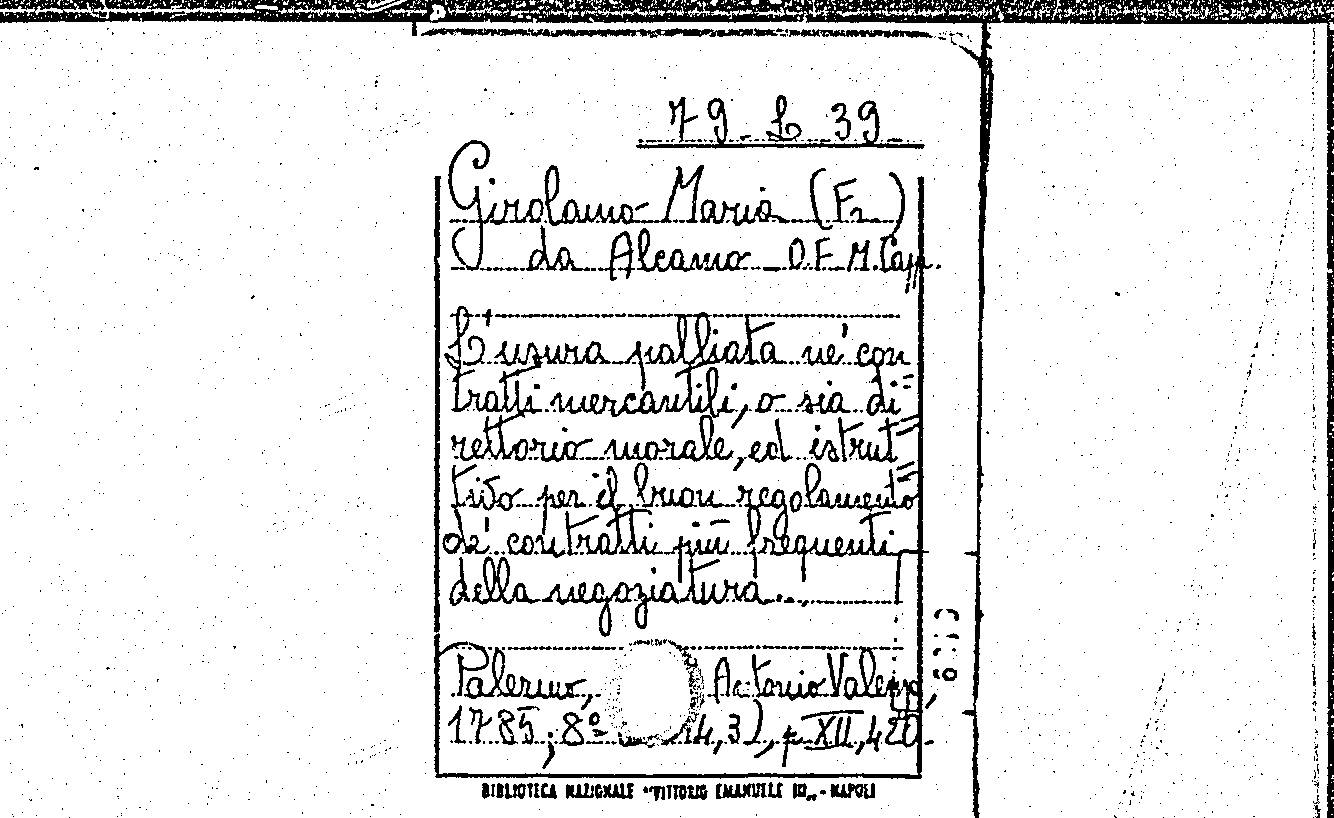 79_L_39
Girolamo Maria (Fr.)
da Alcamo _ O.F.M.Capp.
L'usura palliata ne' con
tratti mercantili, o sia di=
rettorio morale, ed istrut=
tivo per il buon regolamento
de' contratti più frequenti
della negoziatura...
Palermo, Antonio Valenza,
1785; 8º 14,3), p XII, 420.
BIBLIOTECA NAZIONALE "VITTORIO EMANUELE III„ - NAPOLI